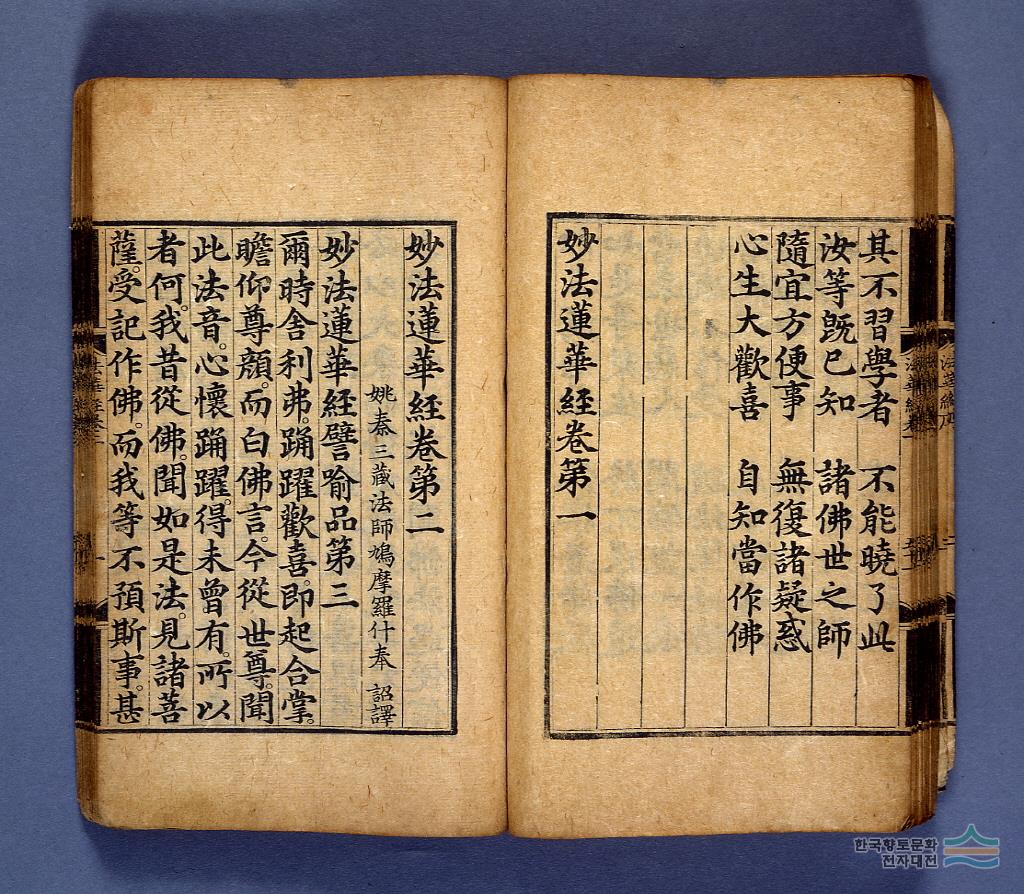 其不習學者 不能曉了此
汝等既已知 諸佛世之師
隨宜方便事 無復諸疑惑
心生大歡喜 自知當作佛
妙法蓮華經卷第一
妙法蓮華經卷第二
姚秦三藏法師鳩摩羅什奉 詔譯
妙法蓮華經譬喻品第三
爾時舍利弗。踊躍歡喜。即起合掌。
瞻仰尊顏。而白佛言。今從世尊。聞
此法音。心懷踊躍。得未曾有。所以
者何。我昔從佛。聞如是法。見諸菩
薩。受記作佛。而我等不預斯事。甚
한국향토문화
전자대전